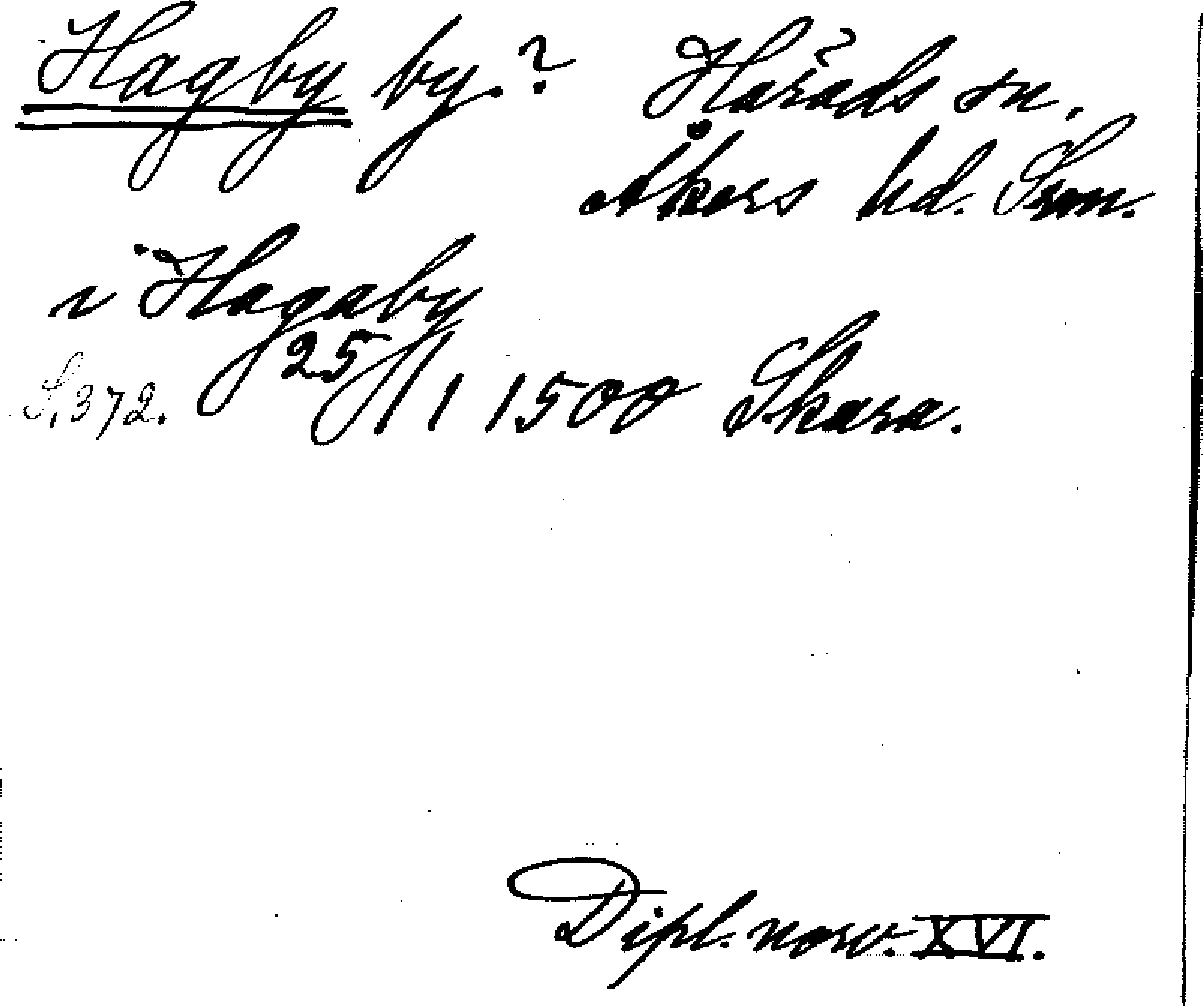 Hagby by.? Harads sn.
Åkers hd. Srm.
i Hagaby
S. 372. 25/1 1500 Skara.
Dipl. norv. XVI.